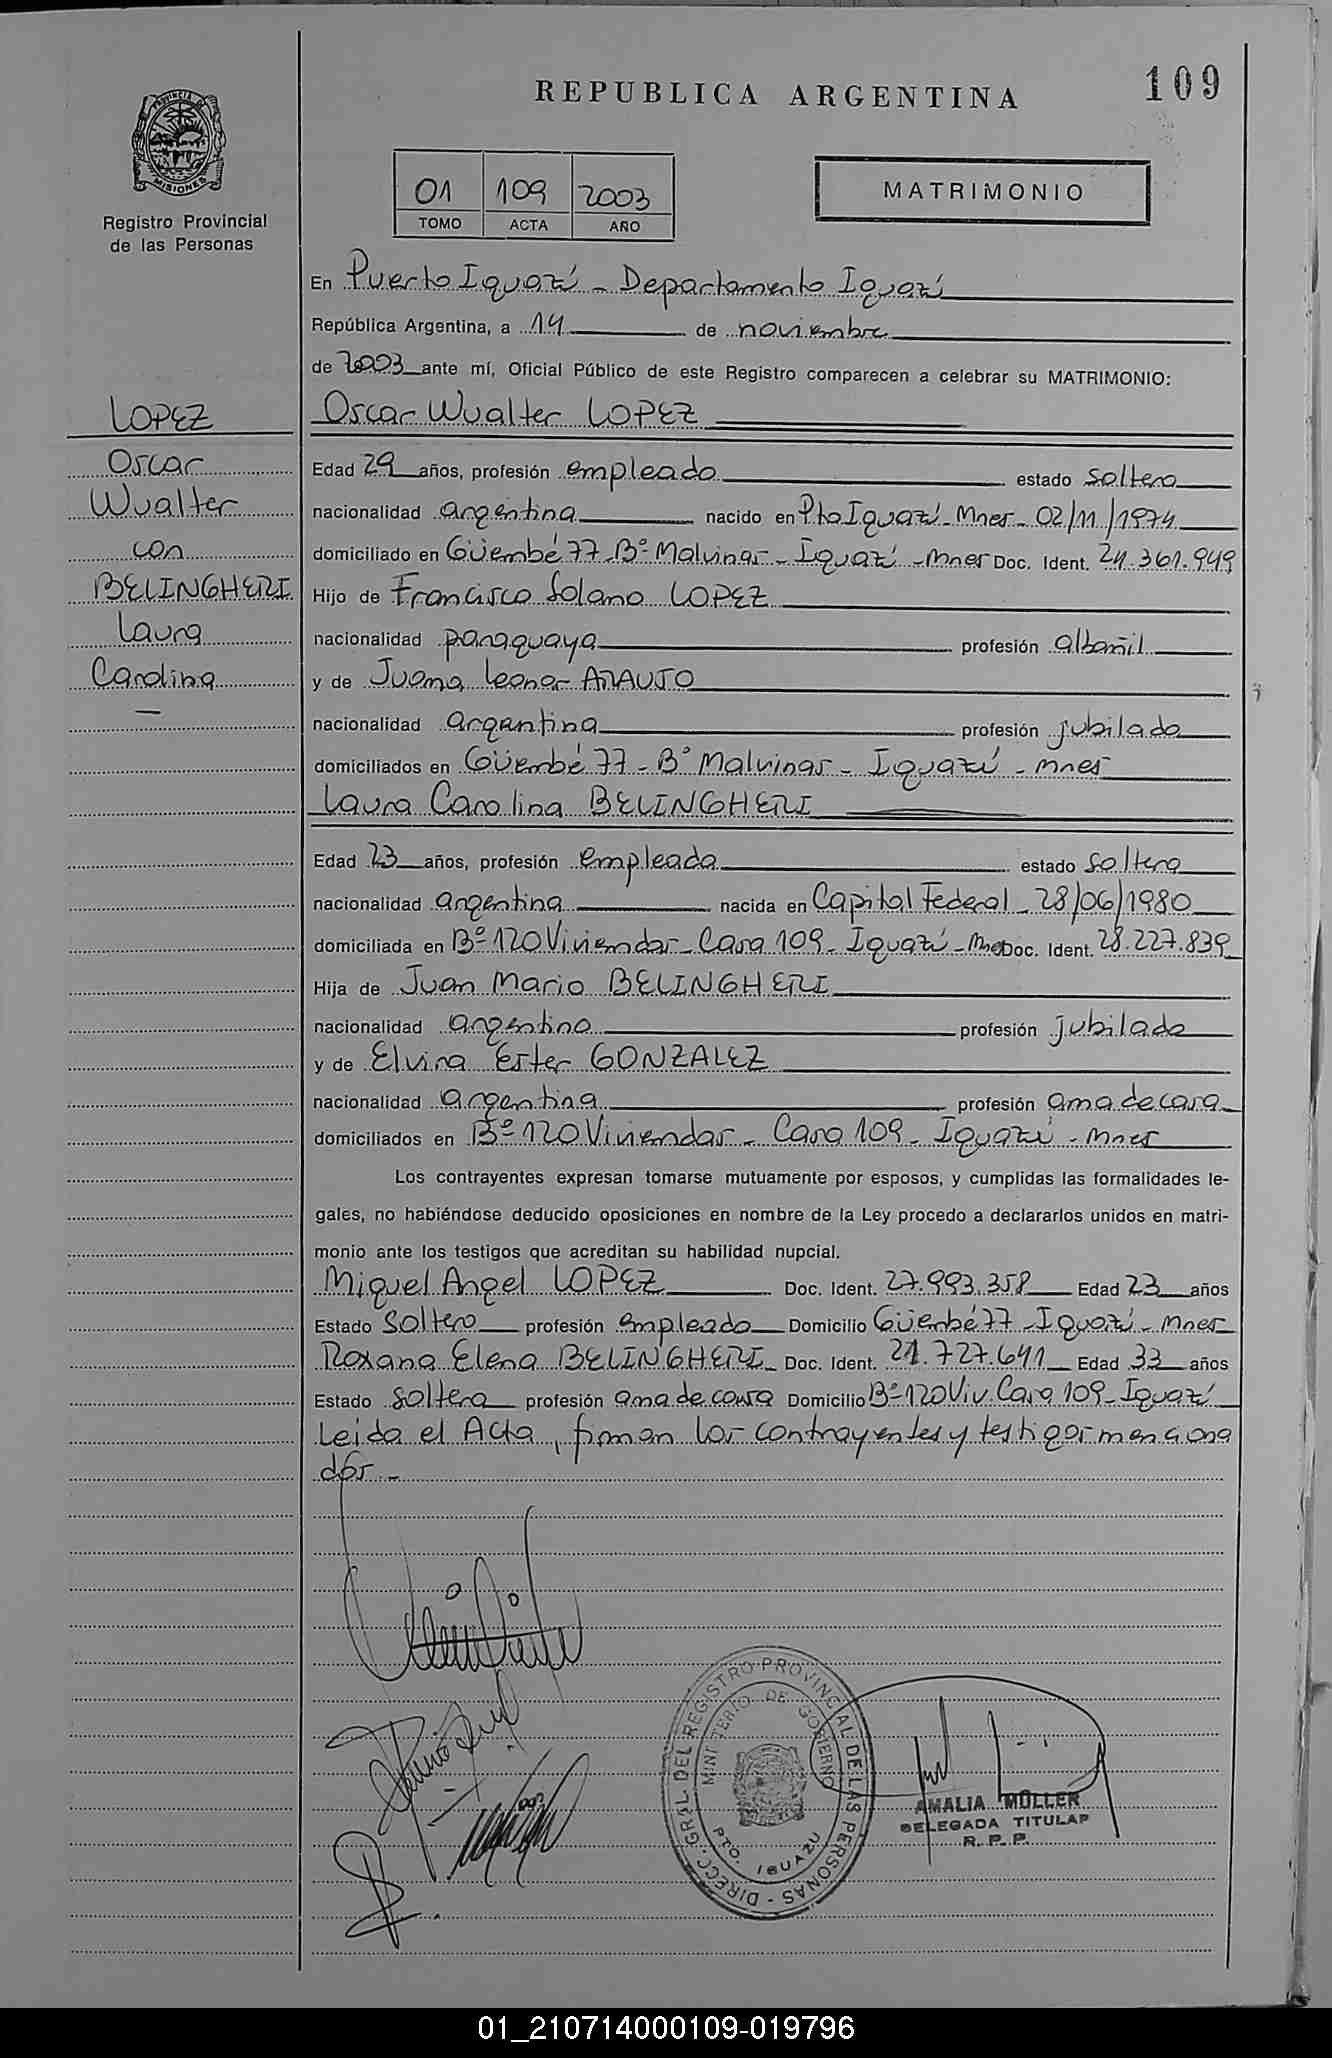 109
REPUBLICA ARGENTINA
PROVINCIA DE
MISIONES
Registro Provincial
de las Personas
01 109 2003
TOMO ACTA AÑO
MATRIMONIO
En Puerto Iguazú - Departamento Iguazú
República Argentina, a 14 de noviembre
de 2003 ante mí, Oficial Público de este Registro comparecen a celebrar su MATRIMONIO:
LOPEZ
Oscar
Wualter
con
BELINGHERI
Laura
Carolina
Oscar Wualter LOPEZ
Edad 29 años, profesión empleado estado soltero
nacionalidad argentina nacido en Pto Iguazú - Mnes - 02/11/1974
domiciliado en Güembé 77 - Bº Malvinas - Iguazú - Mnes Doc. Ident. 24.361.949
Hijo de Francisco Solano LOPEZ
nacionalidad paraguaya profesión albañil
y de Juana Leonor ARAUJO
nacionalidad argentina profesión jubilada
domiciliados en Güembé 77 - Bº Malvinas - Iguazú - Mnes
Laura Carolina BELINGHERI
Edad 23 años, profesión empleada estado soltera
nacionalidad argentina nacida en Capital Federal - 28/06/1980
domiciliada en Bº 120 Viviendas - Casa 109 - Iguazú - Mnes Doc. Ident. 28.227.839
Hija de Juan Mario BELINGHERI
nacionalidad argentino profesión jubilado
y de Elvira Ester GONZALEZ
nacionalidad argentina profesión ama de casa
domiciliados en Bº 120 Viviendas - Casa 109 - Iguazú - Mnes
Los contrayentes expresan tomarse mutuamente por esposos, y cumplidas las formalidades le-
gales, no habiéndose deducido oposiciones en nombre de la Ley procedo a declararlos unidos en matri-
monio ante los testigos que acreditan su habilidad nupcial.
Miguel Angel LOPEZ Doc. Ident. 27.993.358 Edad 23 años
Estado soltero profesión empleado Domicilio Güembé 77 - Iguazú - Mnes
Roxana Elena BELINGHERI Doc. Ident. 21.727.641 Edad 33 años
Estado soltera profesión ama de casa Domicilio Bº 120 Viv. Casa 109 - Iguazú
Leida el Acta, firman los contrayentes y testigos menciona
dos -
DIRECC. GRAL. DEL REGISTRO PROVINCIAL DE LAS PERSONAS -
MINISTERIO DE GOBIERNO
PTO. IGUAZU
AMALIA MÜLLER
DELEGADA TITULAR
R. P. P.
01_210714000109-019796